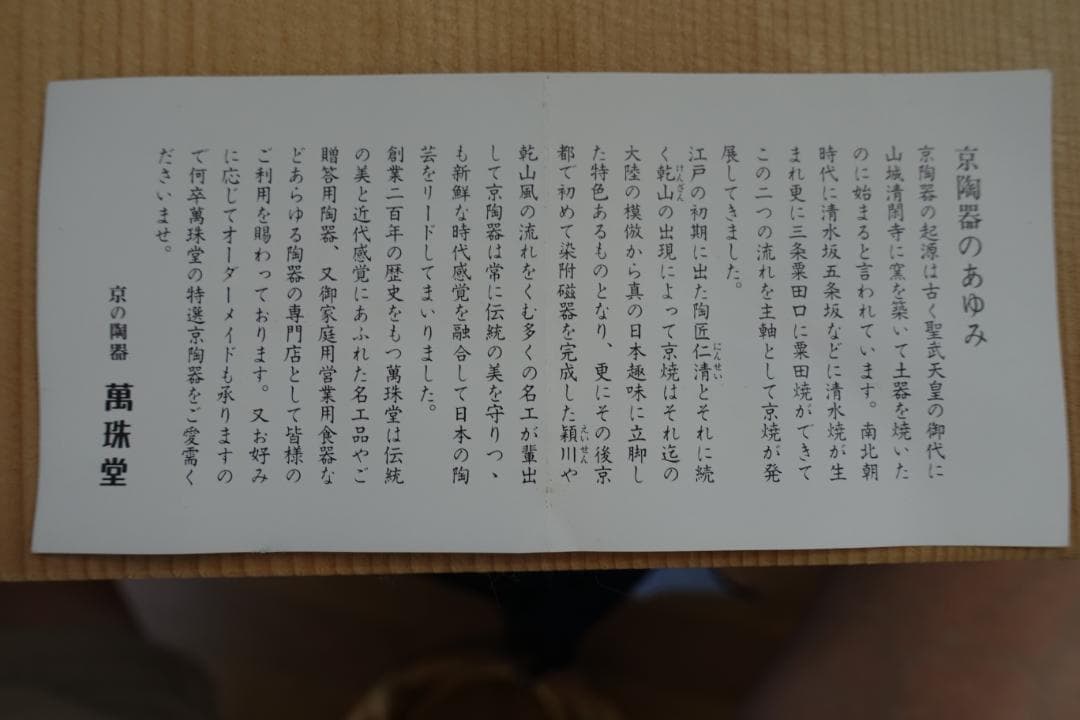 京陶器のあゆみ
京陶器の起源は古く聖武天皇の御代に
山城清閑寺に窯を築いて土器を焼いた
のに始まると言われています。南北朝
時代に清水坂五条坂などに清水焼が生
まれ更に三条粟田口に粟田焼ができて
この二つの流れを主軸として京焼が発
展してきました。
江戸の初期に出た陶匠仁清とそれに続
く乾山の出現によって京焼はそれ迄の
大陸の模倣から真の日本趣味に立脚し
た特色あるものとなり、更にその後京
都で初めて染附磁器を完成した穎川や
乾山風の流れをくむ多くの名工が輩出
して京陶器は常に伝統の美を守りつゝ
も新鮮な時代感覚を融合して日本の陶
芸をリードしてまいりました。
創業二百年の歴史をもつ萬珠堂は伝統
の美と近代感覚にあふれた名工品やご
贈答用陶器、又御家庭用営業用食器な
どあらゆる陶器の専門店として皆様の
ご利用を賜わっております。又お好み
に応じてオーダーメイドも承りますの
で何卒萬珠堂の特選京陶器をご愛需く
ださいませ。
京の陶器 萬珠堂